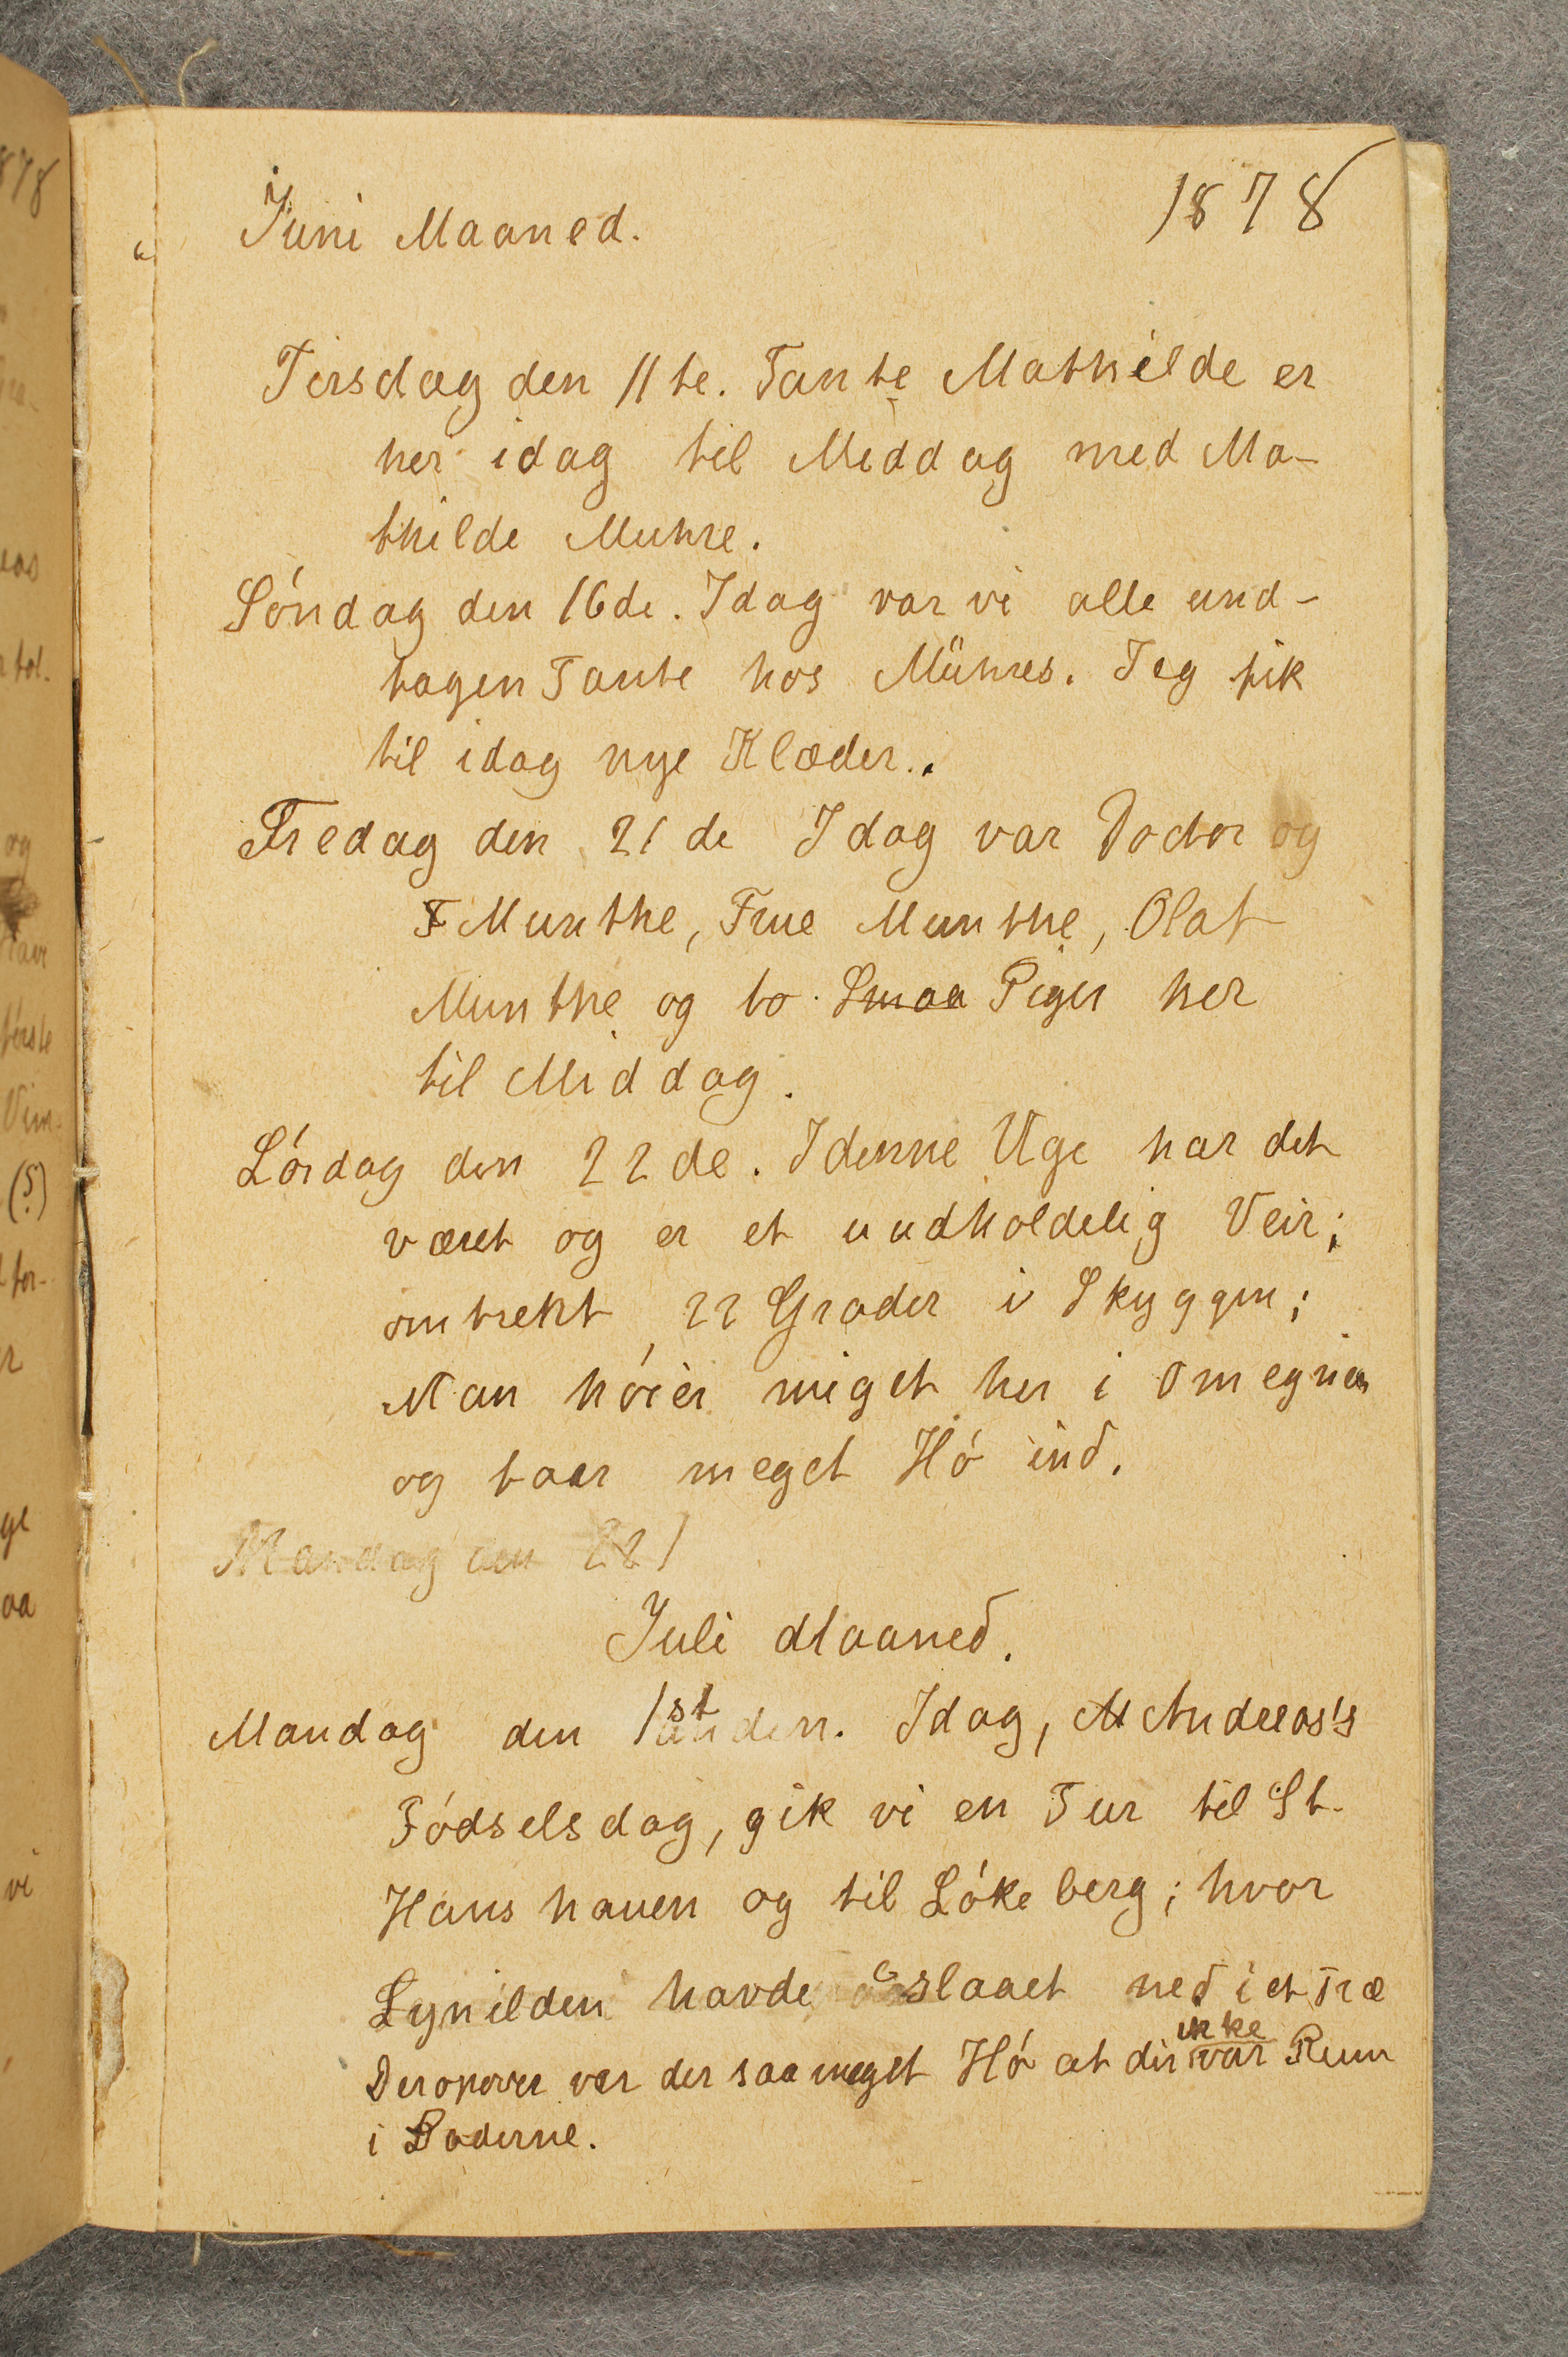 Juni Maaned. 1878
Tirsdag den 11te. Tante Mathilde er
her idag til Middag med Ma-
thilde Muhre.
Söndag den 16de. Idag var vi alle und-
tagen Tante hos Mühres. Jeg fik
til idag nye Klæder.
Fredag den 21de Idag var Doctor og
F Munthe, Frue Munthe, Olaf
Munthe og to Smaa Piger her
til Middag.
Lördag den 22de. I denne Uge har det
været og er et uudholdelig Veir;
omtrekt 22 Grader i Skyggen;
Man höier meget her i Omegnen
og taar meget Hö ind.
Mandag den 221
Juli Maaned.
Mandag den 1st anden. Idag, M Andreas's
Födselsdag, gik vi en Tur til St.
Hanshauen og til Lökeberg; hvor
Lynilden havde slaaet ned i et Træ
Deropover var der saa meget Hö at der ikke var Rum
i Laderne.
878
og
(5)
aa
vi